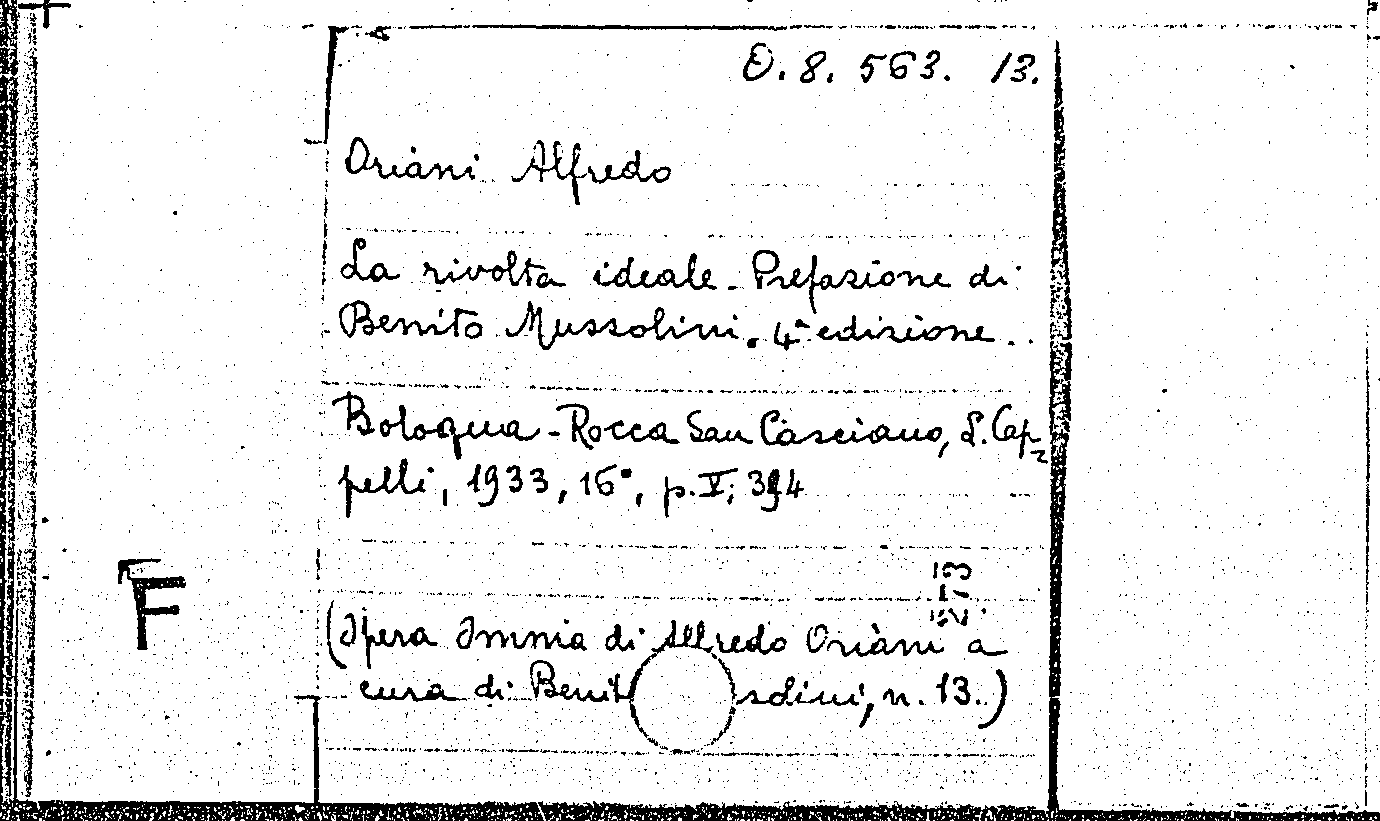 O. 8. 563. 13.
Oriàni Alfredo
La rivolta ideale - Prefazione di
Benito Mussolini. 4ª edizione.
Bologna - Rocca San Casciano, L. Cap-
pelli, 1933, 16°, p. V,
(Opera Omnia di Alfredo Oriàni a
cura di Benit solini, n. 13.)
F